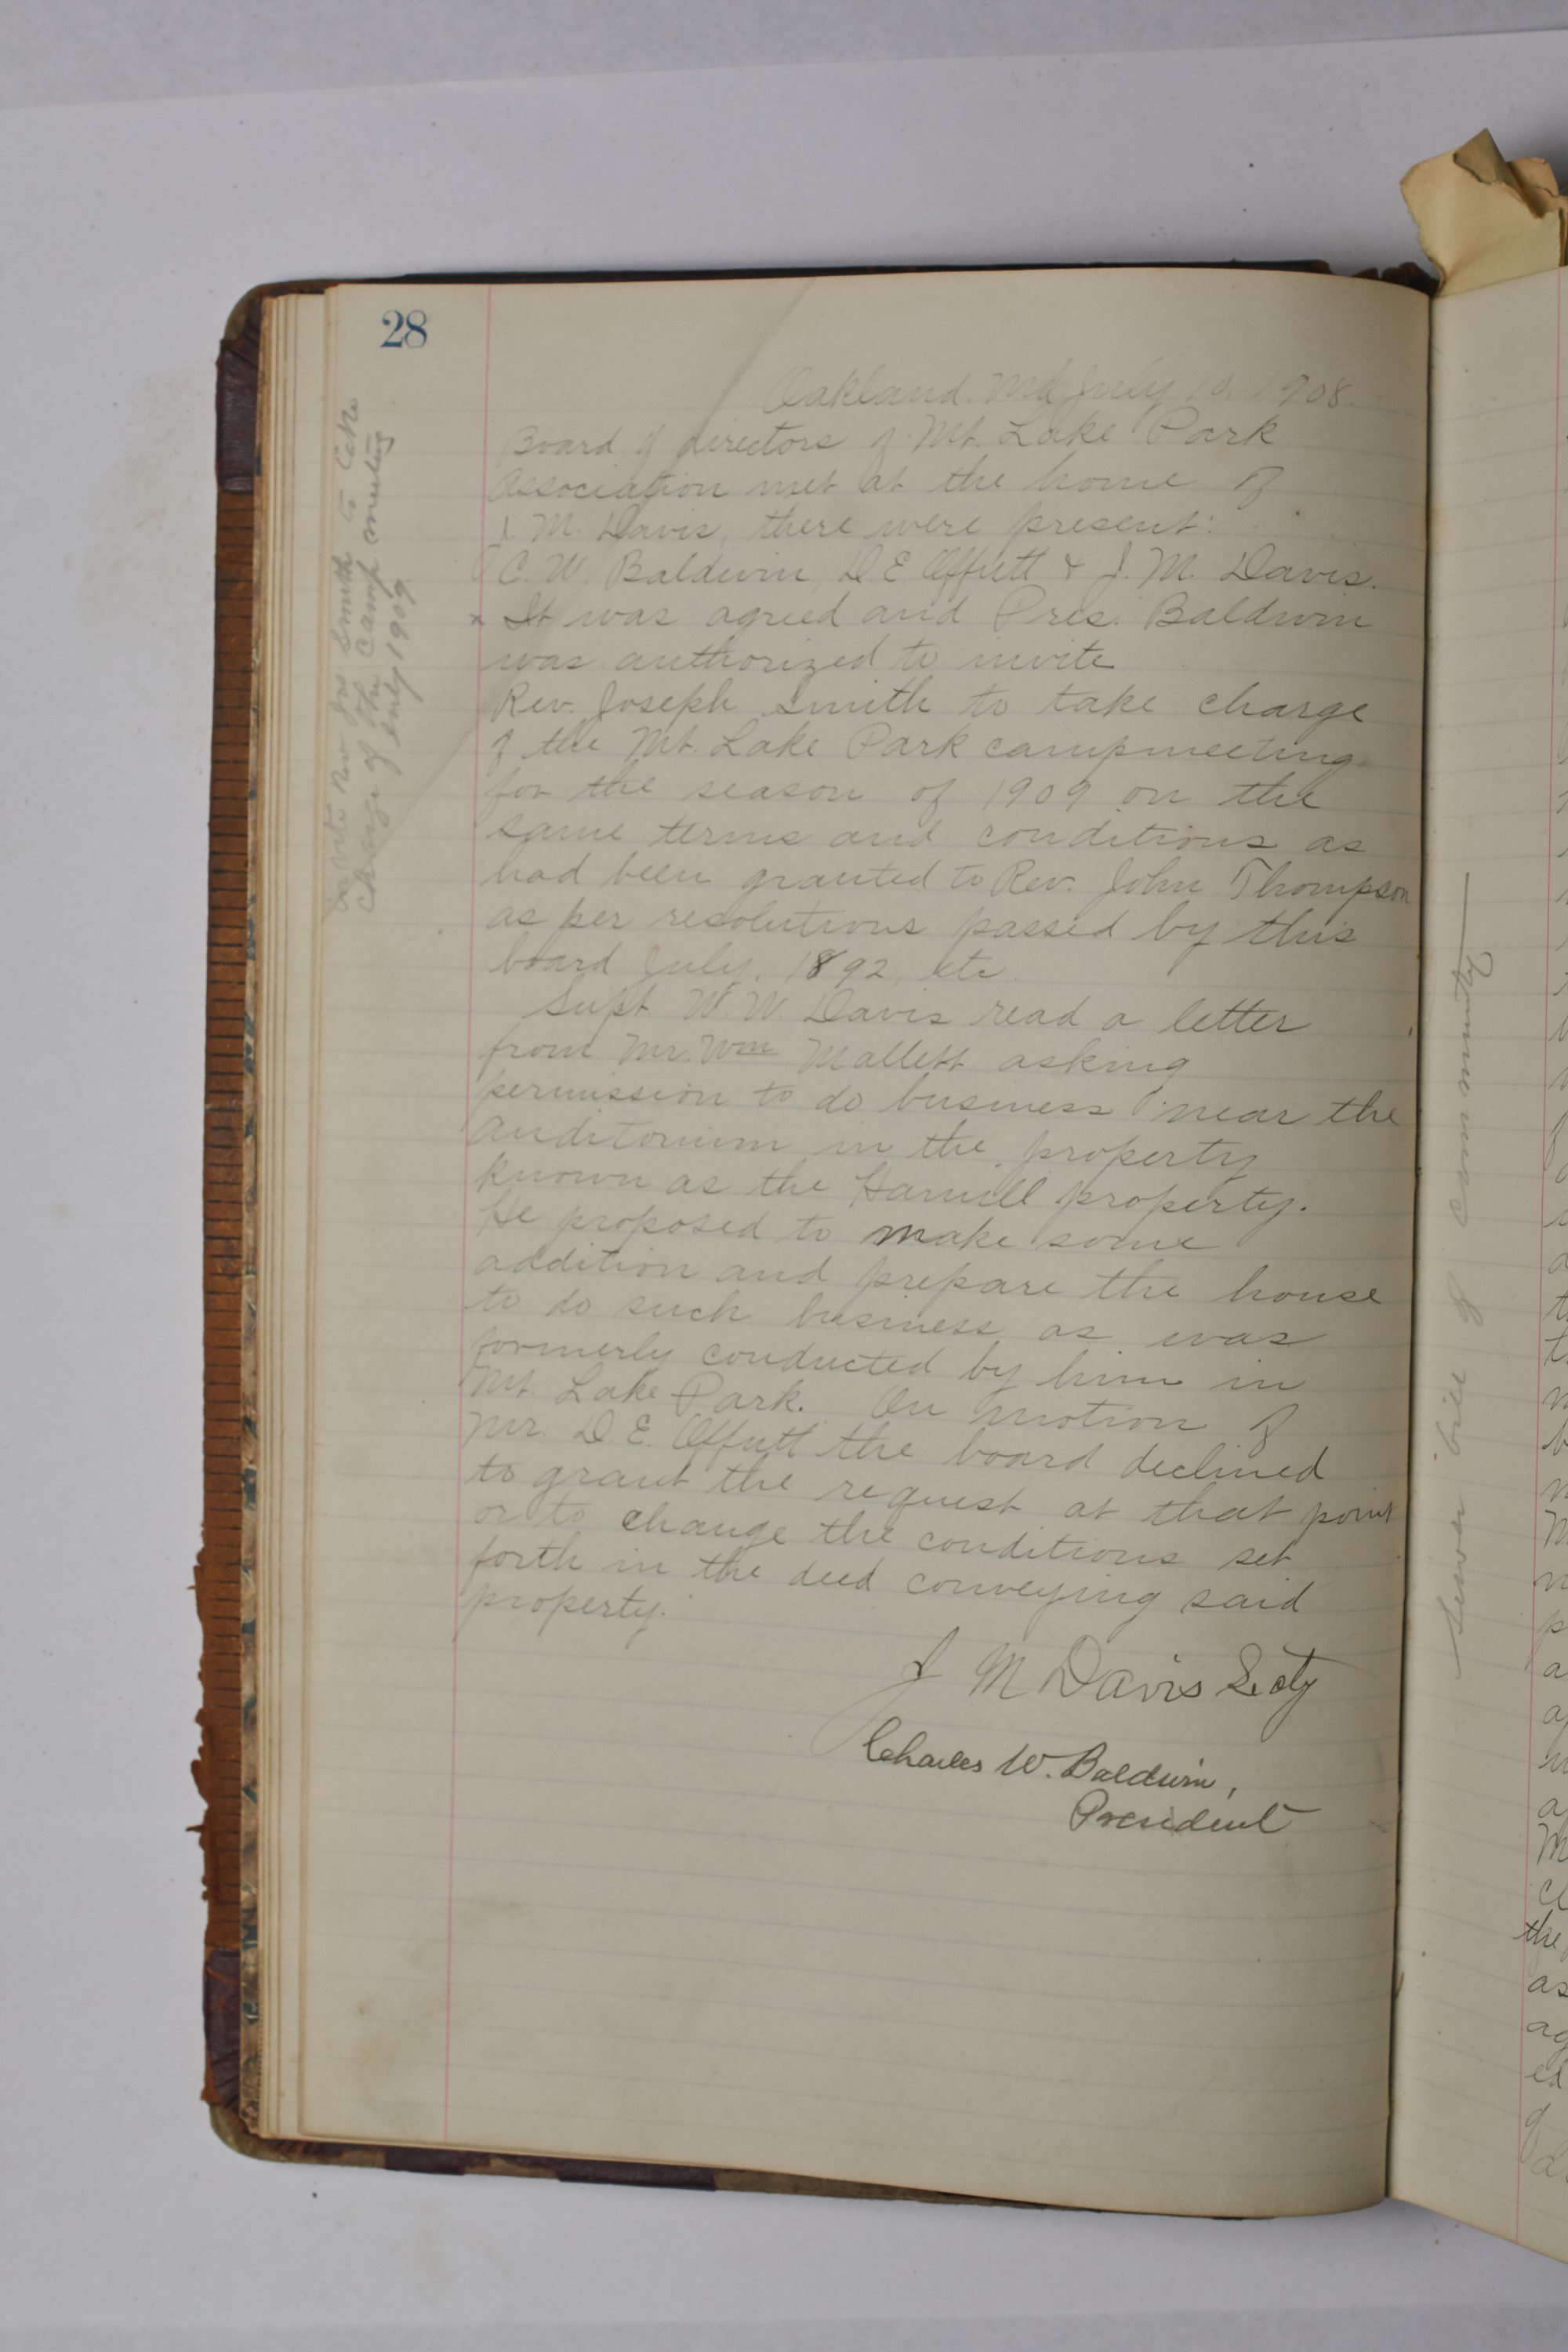 28
Oakland. Md July 10. 1908.
Board of directors of Mt. Lake Park
Association met at the home of
J. M. Davis, there were present:
C. W. Baldwin, D. E Offutt & J. M. Davis.
x It was agreed and Pres. Baldwin
was authorized to invite
Rev. Joseph Smith to take charge
of the Mt. Lake Park campmeeting
for the season of 1909 on the
same terms and conditions as
had been granted to Rev. John Thompson
as per resolutions passed by this
board July, 1892, etc.
Supt. W. W. Davis read a letter
from Mr. Wm Mallett asking
permission to do business near the
Auditorium in the property
known as the Hamill property.
He proposed to make some
addition and prepare the house
to do such business as was
formerly conducted by him in
Mt. Lake Park. On motion of
Mr. D. E. Offutt the board declined
to grant the request at that point
or to change the conditions set
forth in the deed conveying said
property.
J M Davis Secty
Charles W. Baldwin,
President
Invite Rev Jos Smith to take
charge of the Camp meeting
only 1909.
Sewer bill & community